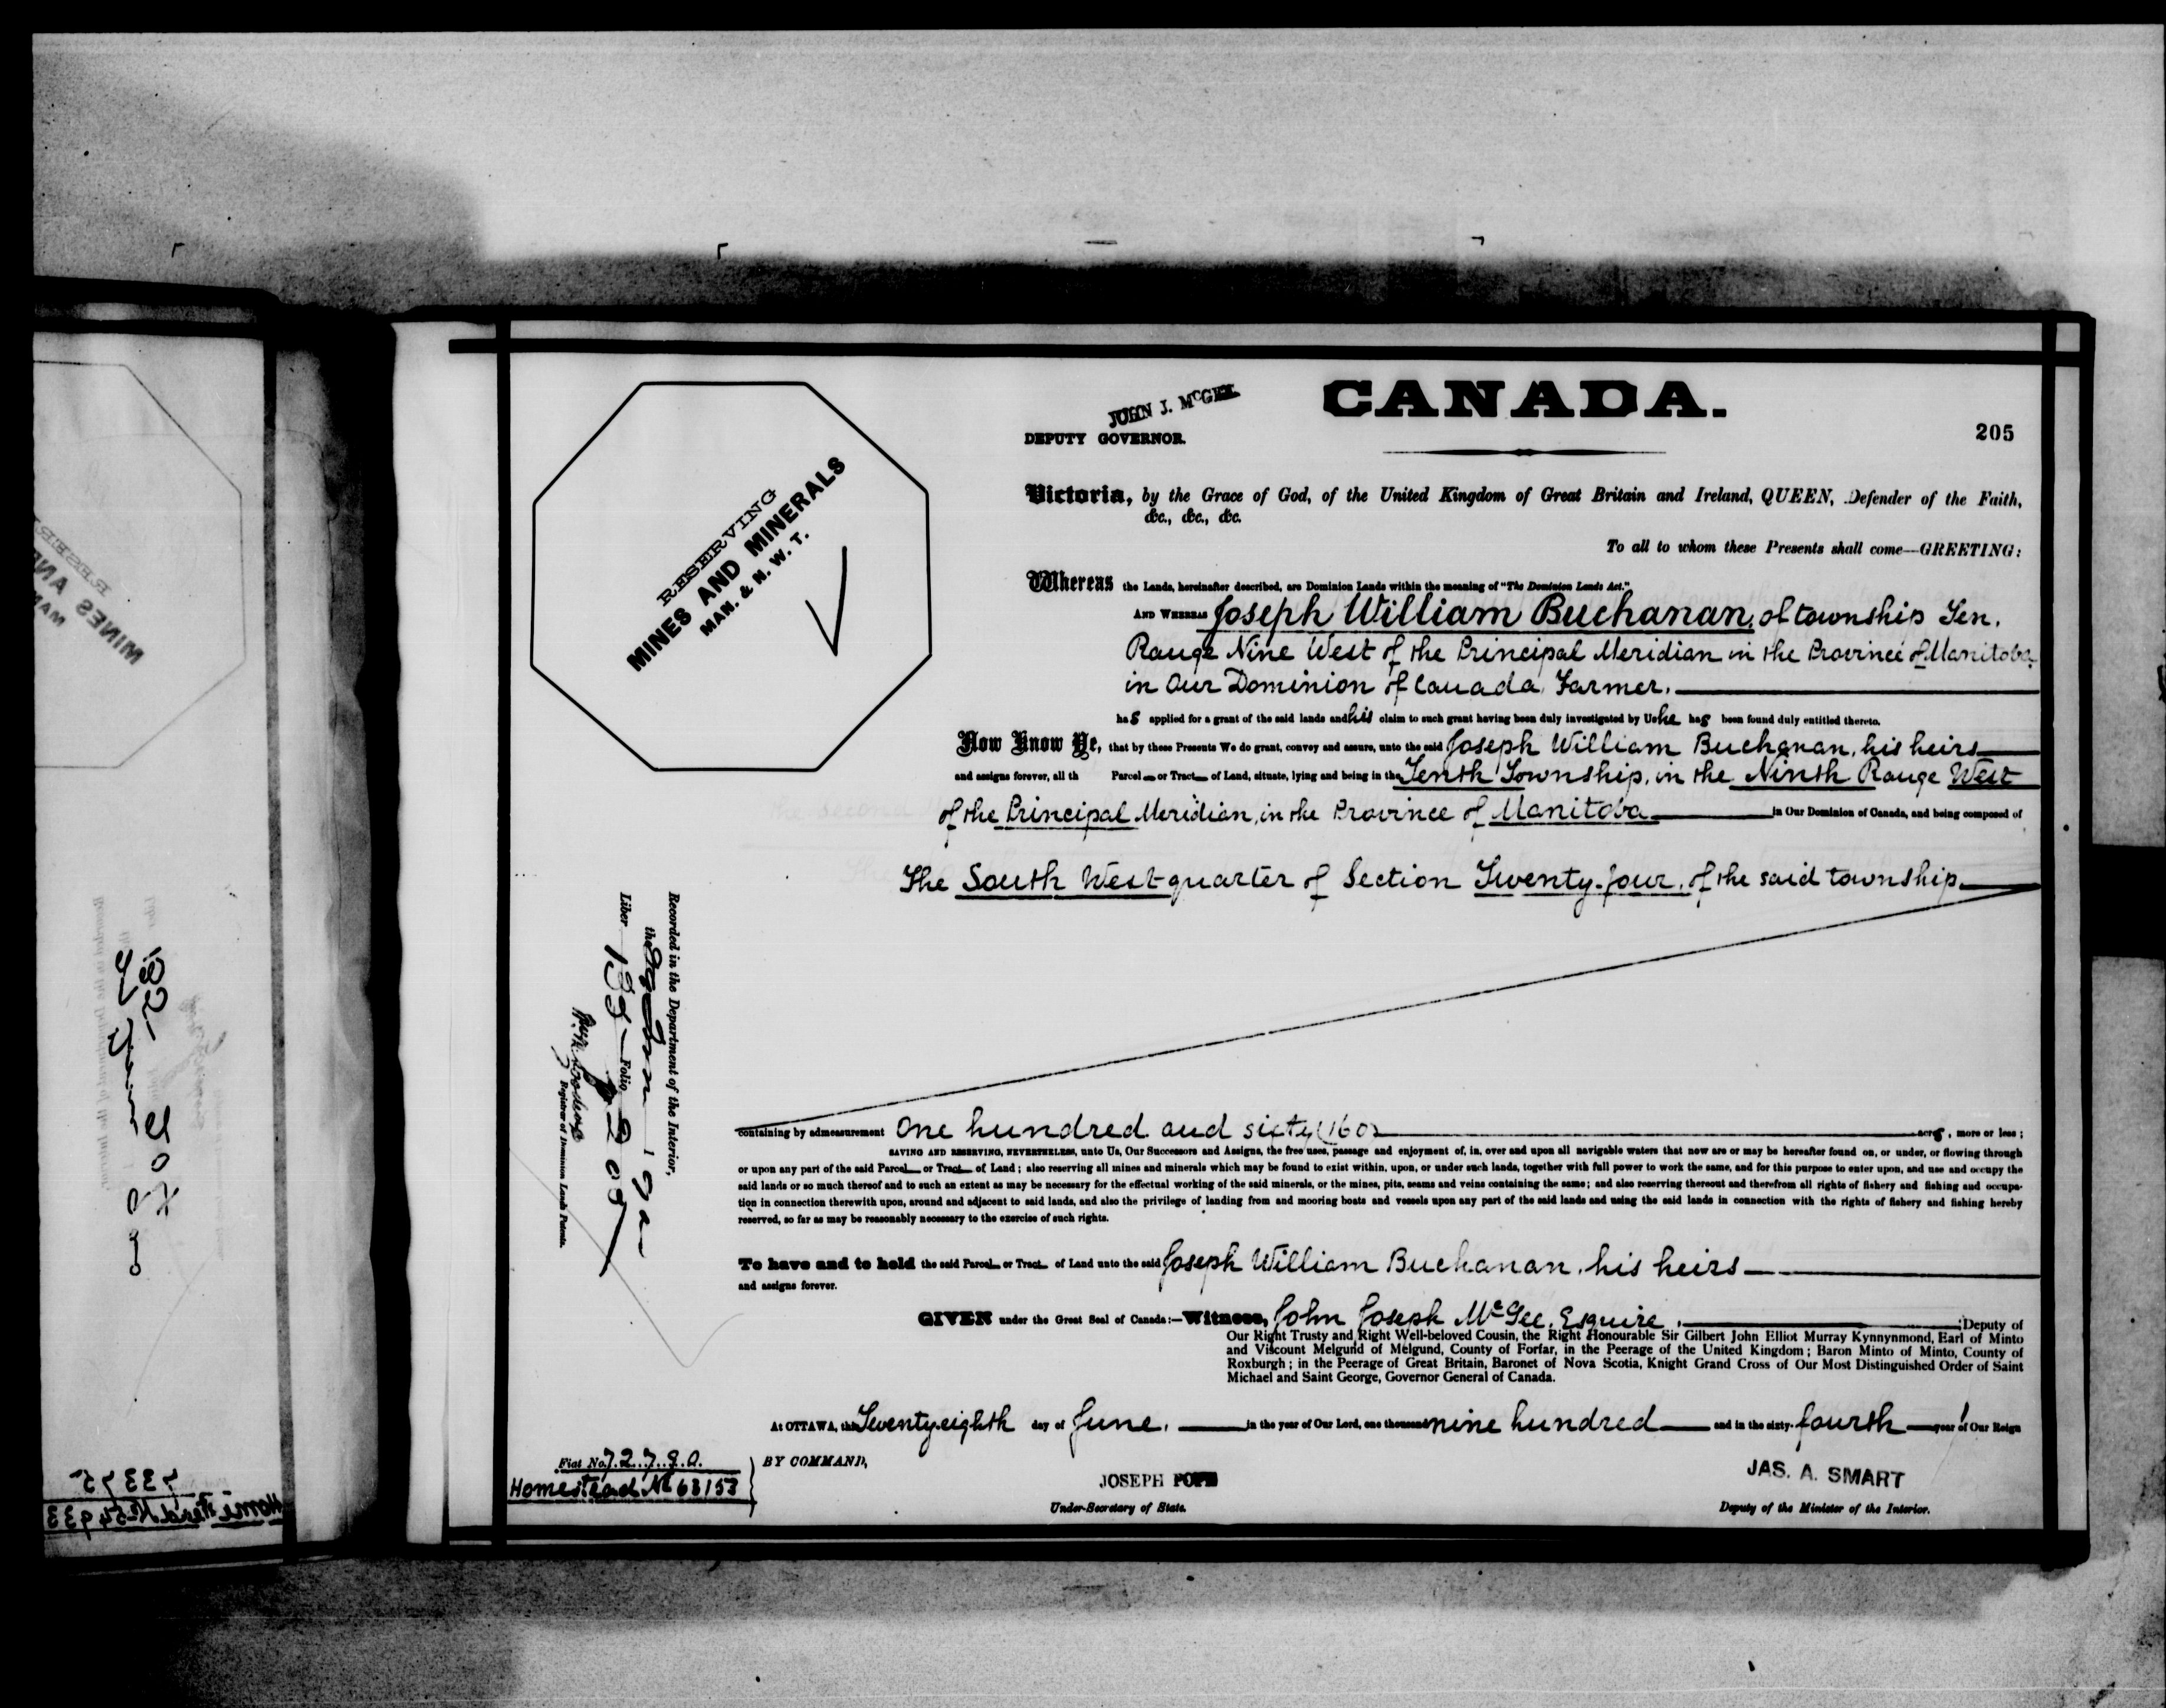 CANADA.
JOHN J. McGEE
DEPUTY GOVERNOR.
205
RESERVING
MINES AND MINERALS
MAN. & N. W. T.
Victoria, by the Grace of God, of the United Kingdom of Great Britain and Ireland, QUEEN, Defender of the Faith,
&c., &c., &c.
To all to whom these Presents shall come—GREETING:
Whereas the Lands, hereinafter described, are Dominion Lands within the meaning of "The Dominion Lands Act."
AND WHEREAS Joseph William Buchanan, of township Ten,
Range Nine West of the Principal Meridian in the Province of Manitoba
in Our Dominion of Canada, Farmer,
has applied for a grant of the said lands and his claim to such grant having been duly investigated by Us he has been found duly entitled thereto.
Now Know Ye, that by these Presents We do grant, convey and assure, unto the said Joseph William Buchanan, his heirs
and assigns forever, all th Parcel or Tract of Land, situate, lying and being in the Tenth Township, in the Ninth Range West
of the Principal Meridian, in the Province of Manitoba in Our Dominion of Canada, and being composed of
The South West quarter of Section Twenty-four, of the said township
containing by admeasurement One hundred and sixty (160) acres, more or less;
SAVING AND RESERVING, NEVERTHELESS, unto Us, Our Successors and Assigns, the free uses, passage and enjoyment of, in, over and upon all navigable waters that now are or may be hereafter found on, or under, or flowing through
or upon any part of the said Parcel or Tract of Land; also reserving all mines and minerals which may be found to exist within, upon, or under such lands, together with full power to work the same, and for this purpose to enter upon, and use and occupy the
said lands or so much thereof and to such an extent as may be necessary for the effectual working of the said minerals, or the mines, pits, seams and veins containing the same; and also reserving thereout and therefrom all rights of fishery and fishing and occupa-
tion in connection therewith upon, around and adjacent to said lands, and also the privilege of landing from and mooring boats and vessels upon any part of the said lands and using the said lands in connection with the rights of fishery and fishing hereby
reserved, so far as may be reasonably necessary to the exercise of such rights.
To have and to hold the said Parcel or Tract of Land unto the said Joseph William Buchanan, his heirs
and assigns forever.
GIVEN under the Great Seal of Canada:—Witness, John Joseph McGee, Esquire, Deputy of
Our Right Trusty and Right Well-beloved Cousin, the Right Honourable Sir Gilbert John Elliot Murray Kynnynmond, Earl of Minto
and Viscount Melgund of Melgund, County of Forfar, in the Peerage of the United Kingdom; Baron Minto of Minto, County of
Roxburgh; in the Peerage of Great Britain, Baronet of Nova Scotia, Knight Grand Cross of Our Most Distinguished Order of Saint
Michael and Saint George, Governor General of Canada.
At OTTAWA, this Twenty-eighth day of June, in the year of Our Lord, one thousand nine hundred and in the sixty-fourth year of Our Reign
Fiat No. 72790.
BY COMMAND,
Homestead No 63153
JOSEPH POPE
Under-Secretary of State.
JAS. A. SMART
Deputy of the Minister of the Interior.
Recorded in the Department of the Interior,
the
Liber Folio 205
Registrar of Dominion Lands Patents.
73375
Homestead No 54933